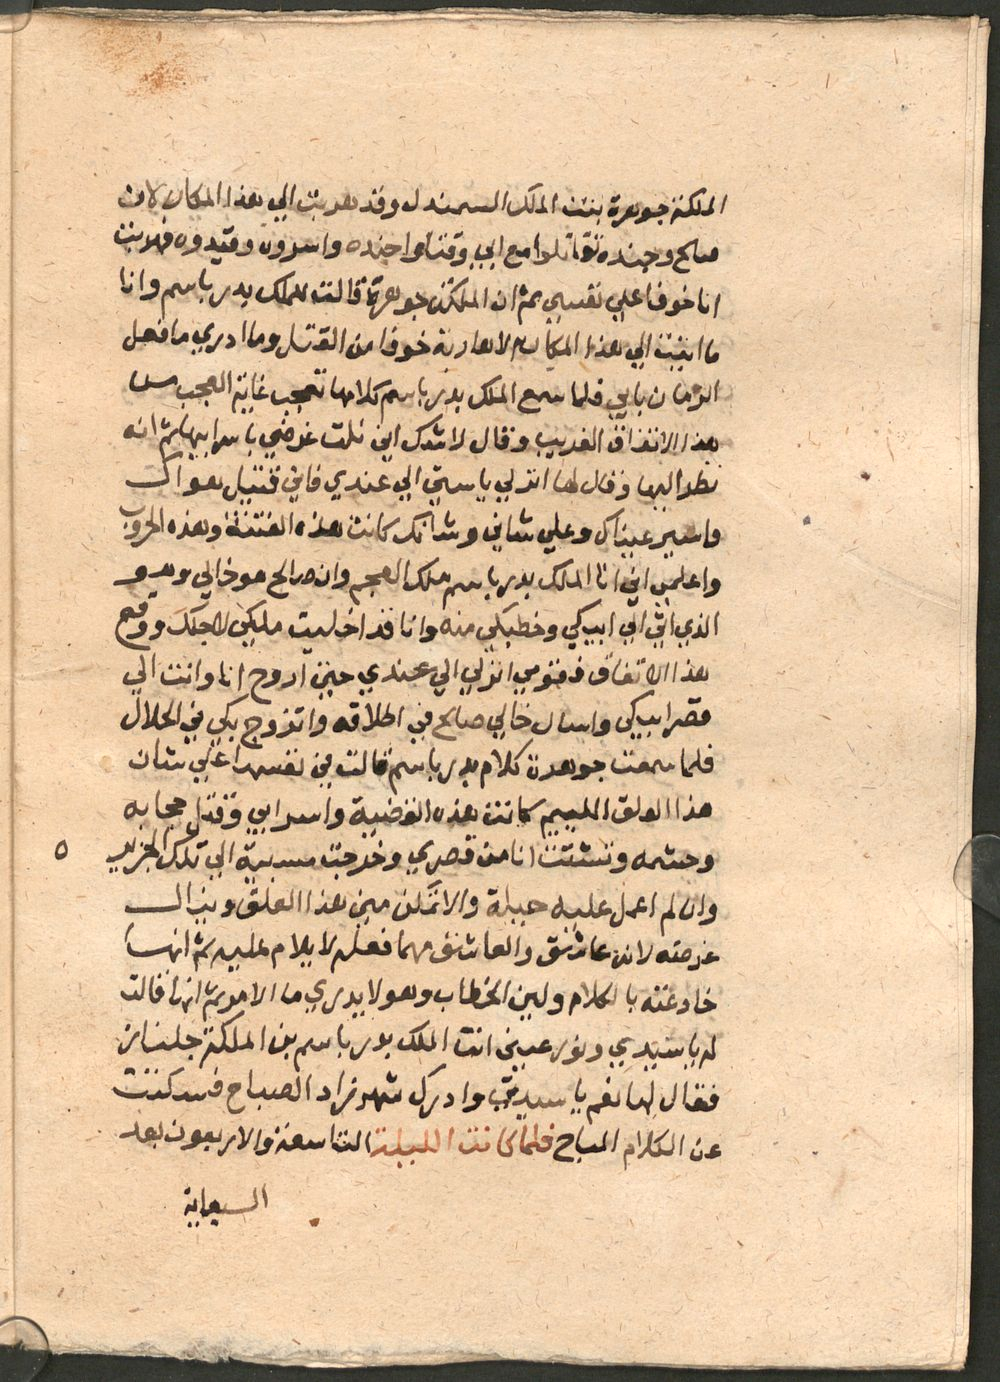 الملكة جوهرة بنت الملك السمندل وقد هربت الي هذا المكان لان
صالح وجنده تقاتلوا مع ابي وقتلوا جنده واسروه وقيدوه فهربت
انا خوفا علي نفسي ثم ان الملكة جوهرة قالت للملك بدر باسم وانا
ما اتيت الي هذا المكان الا هاربة خوفا من القتل وما ادري ما فعل
الزمان بابي فلما سمع الملك بدر باسم كلامها تعجب غاية العجب من
هذا الاتفاق الغريب وقال لا شك اني نلت غرضي باسر ابيها ثم انه
نظر اليها وقال لها انزلي يا ستي الي عندي فاني قتيل هواك
واسير عيناكي وعلي شاني وشانك كانت هذه الفتنة وهذه الحروب
واعلمي اني انا الملك بدر باسم ملك العجم وان صالح هو خالي وهو
الذي اتي الي ابيكي وخطبكي منه وانا قد اخليت ملكي لاجلك ووقع
هذا الاتفاق فقومي انزلي الي عندي حتي اروح انا وانت الي
قصر ابيكي واسال خالي صالح في اطلاقه واتزوج بكي في الحلال
فلما سمعت جوهرة كلام بدر باسم قالت في نفسها علي شان
هذا العلق الليم كانت هذه القضية واسر ابي وقتل حجابه
وحشمه وتشتت انا من قصري وخرجت مسبية الي تلك الجزيره
وان لم اعمل عليه حيلة والا تمكن مني هذا العلق وينال
غرضه لانه عاشق والعاشق مهما فعل لا يلام عليه ثم انها
خادعته بالكلام ولين الخطاب وهو لا يدري ما الامر ثم انها قالت
له يا سيدي ونور عيني انت الملك بدر باسم بن الملكة جلناز
فقال لها نعم يا سيدتي وادرك شهرزاد الصباح فسكتت
عن الكلام المباح فلما كانت الليلة التاسعة والاربعون بعد
السبعماية